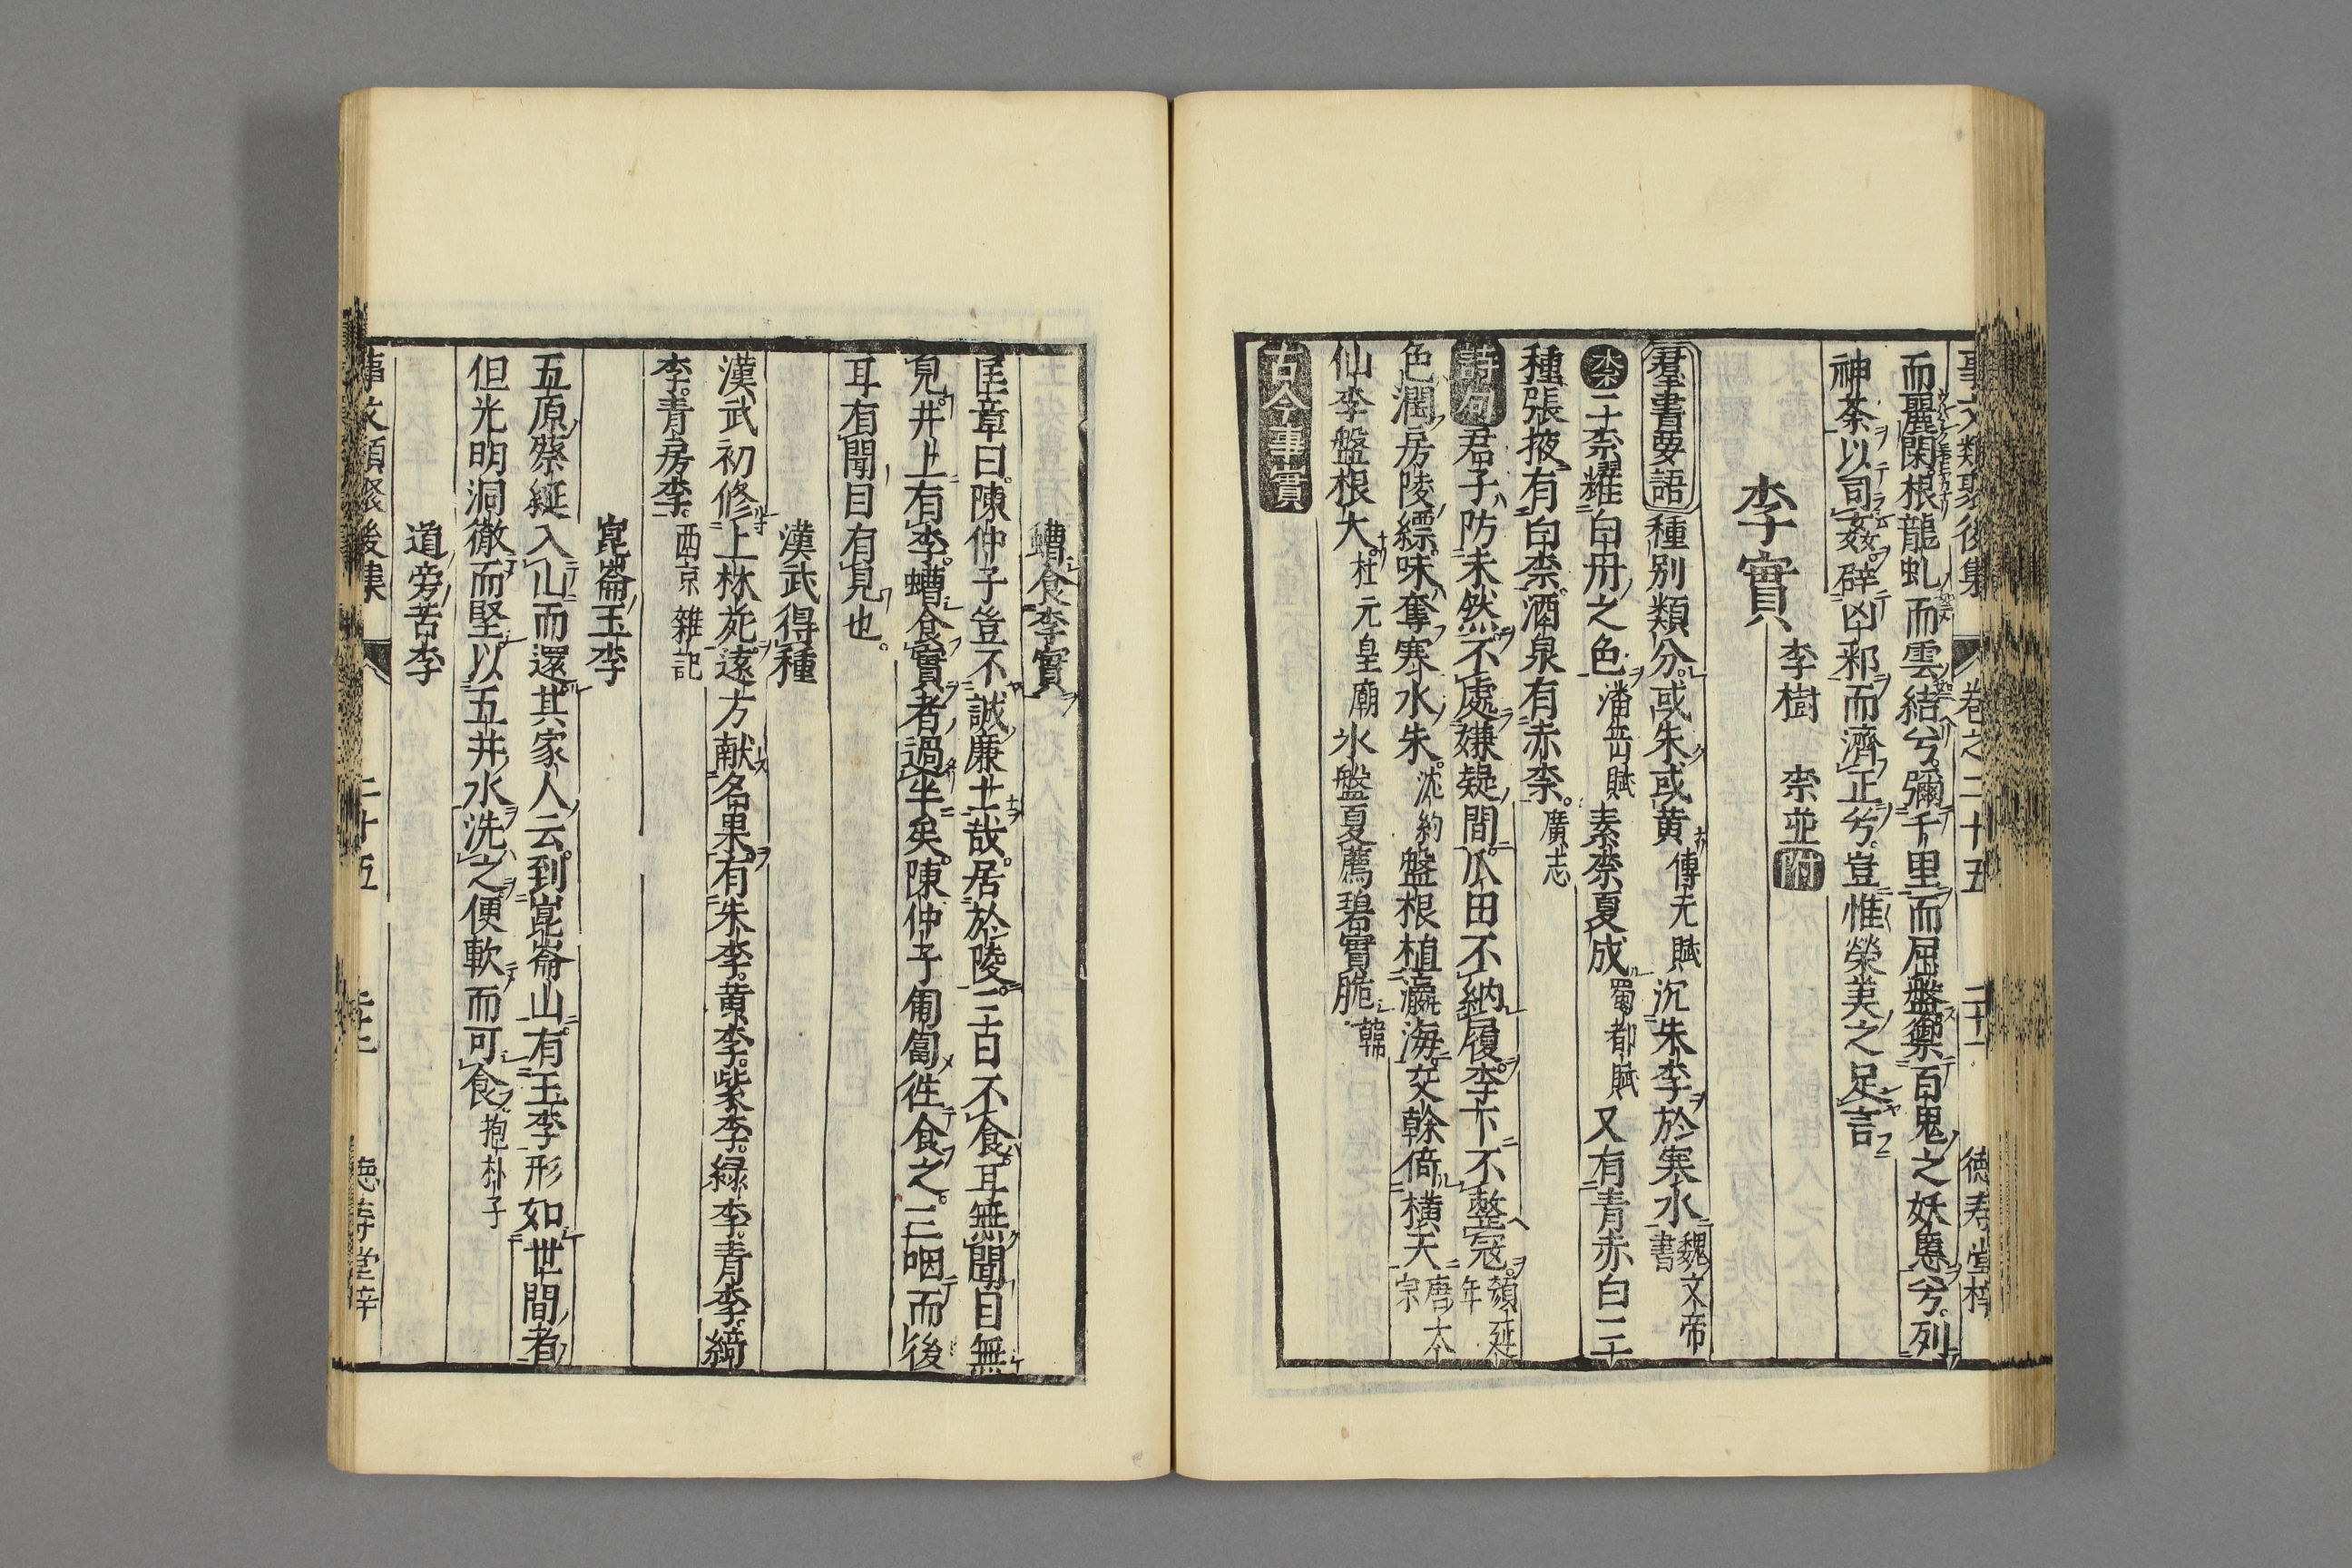 事文類聚後集 卷之二十五 二十一 德寿堂梓
而麗閑根龍虬而雲結兮彌千里而屈盤禦百鬼之妖慝兮列
神荼以司姦辟凶邪而濟正兮豈惟榮美之足言
李實 李樹 柰並附
羣書要語 種別類分或朱或黄 傅玄賦 沉朱李於寒水 魏文帝書
柰 二柰耀白丹之色 潘岳賦 素柰夏成 蜀都賦 又有青赤白三
種張掖有白柰酒泉有赤柰 廣志
詩句 君子防未然不處嫌疑間瓜田不納履李下不整冠 顏延年
色潤房陵縹味奪寒水朱 沈約 盤根植瀛海交幹倚橫天 唐太宗
仙李盤根大 杜元皇廟 氷盤夏薦碧實脆 韓
古今事實
螬食李實
匡章曰陳仲子豈不誠廉士哉居於陵三日不食耳無聞目無
見井上有李螬食實者過半矣陳仲子匍匐徃食之三咽而後
耳有聞目有見也
漢武得種
漢武初修上林苑遠方献名果有朱李黄李紫李緑李青李綺
李青房李 西京雜記
崑崙玉李
五原蔡綖入山而還其家人云到崑崙山有玉李形如世間者
但光明洞徹而堅以五井水洗之便軟而可食 抱朴子
道旁苦李
事文類聚後集 二十五 德寿堂梓